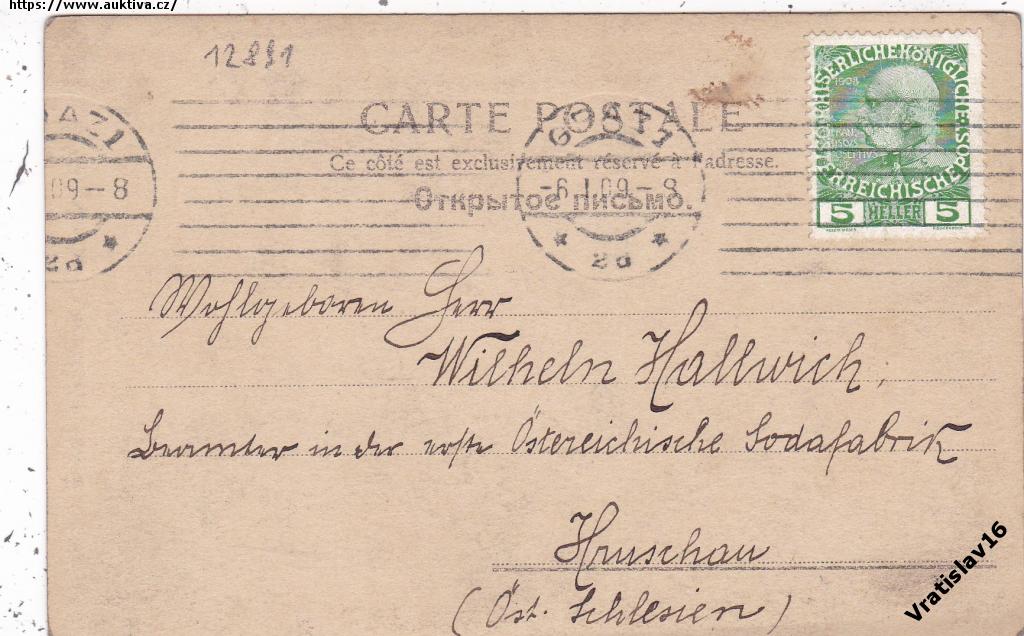 https://www.auktiva.cz/
12891
CARTE POSTALE
Ce côté est exclusivement réservé à l'adresse.
Открытое письмо.
-6.I.09-8
2d
09-8
2d
1908
KAISERLICHE KÖNIGLICHE
ÖSTERREICHISCHE POST
5 HELLER 5
Wohlgeboren Herr
Wilheln Hallwich,
Beamter in der erste Östereichische Sodafabrik
Hruschau
(Öst. Schlesien)
Vratislav16